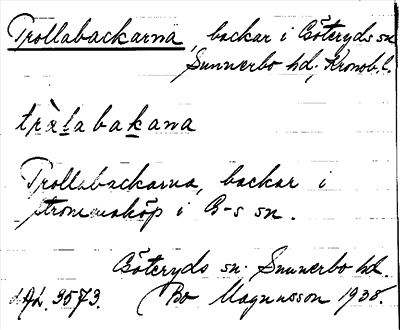 Trollabackarna, backar i Böteryds sn
Sunnerbo hd, Kronob. l.
tràlabakana
Trollabackarna, backar i
Stromenshöp i B-s sn.
Böteryds sn. Sunnerbo hd.
3573. Bo Magnusson 1938.